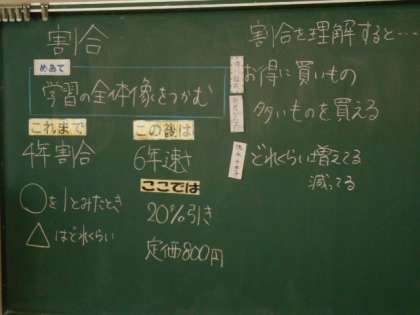 割合
めあて
学習の全体像をつかむ
これまで
4年割合
○を1とみたとき
△はどれくらい
この後は
6年速さ
ここでは
20%引き
定価800円
割合を理解すると…
お得に買いもの
多いものを買える
どれくらい増えてる
減ってる